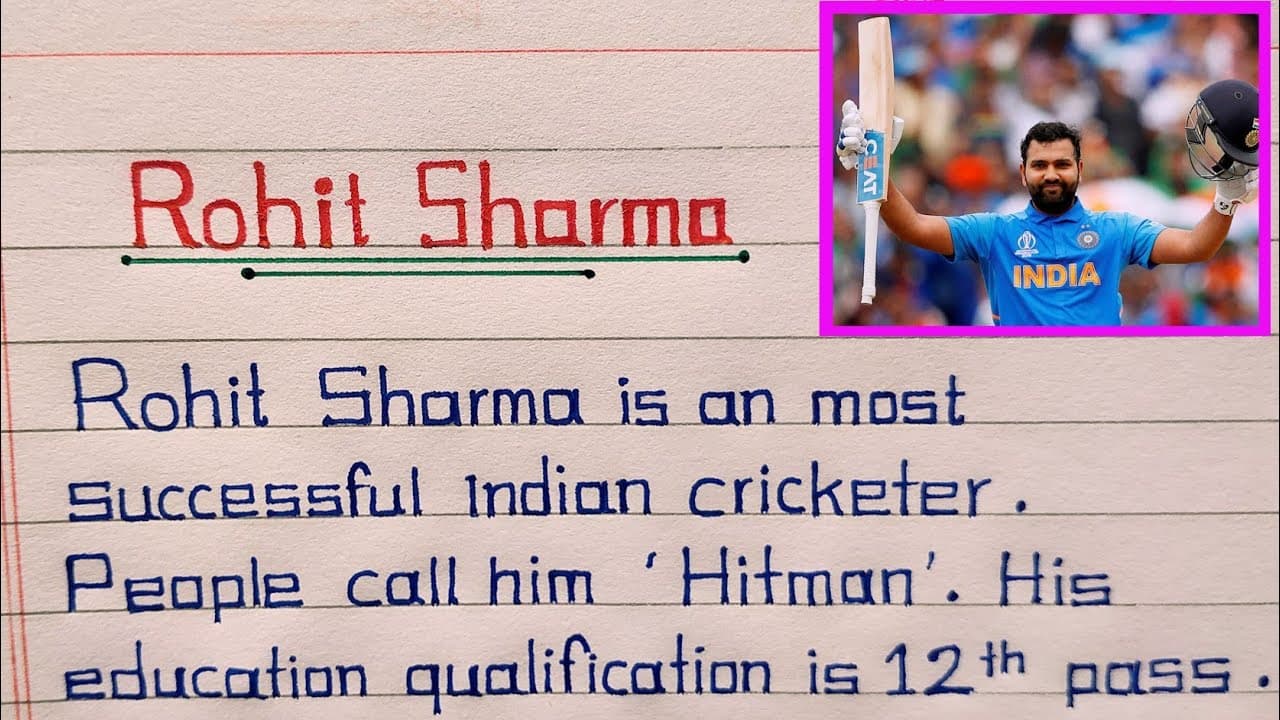 Rohit Sharma
CEAT
INDIA
Rohit Sharma is an most
successful Indian cricketer.
People call him 'Hitman'. His
education qualification is 12th pass.